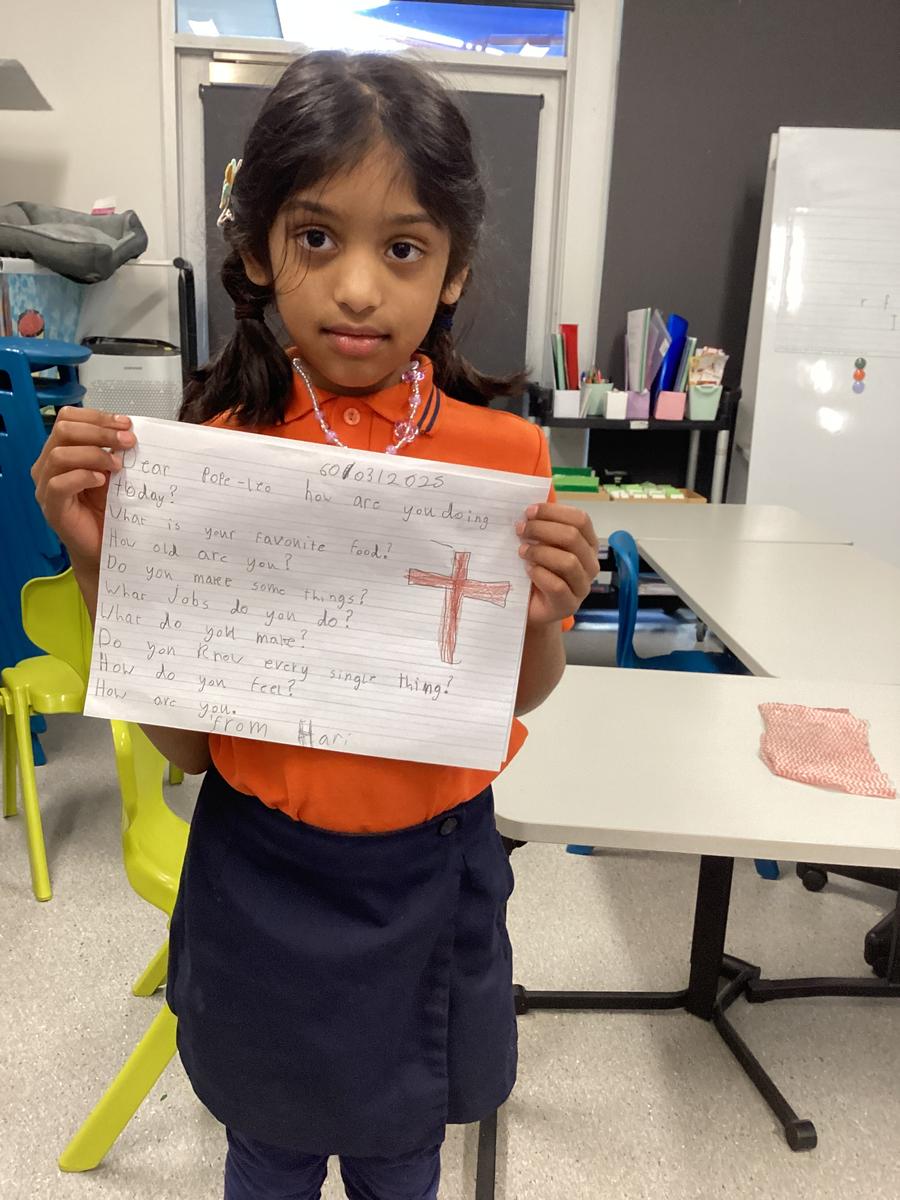 60/03/2025
Dear Pope-Leo how are you doing
today?
What is your favonite food?
How old are you?
Do you make some things?
What Jobs do you do?
What do you make?
Do you Know every single thing?
How do you feel?
How are you.
from Hari